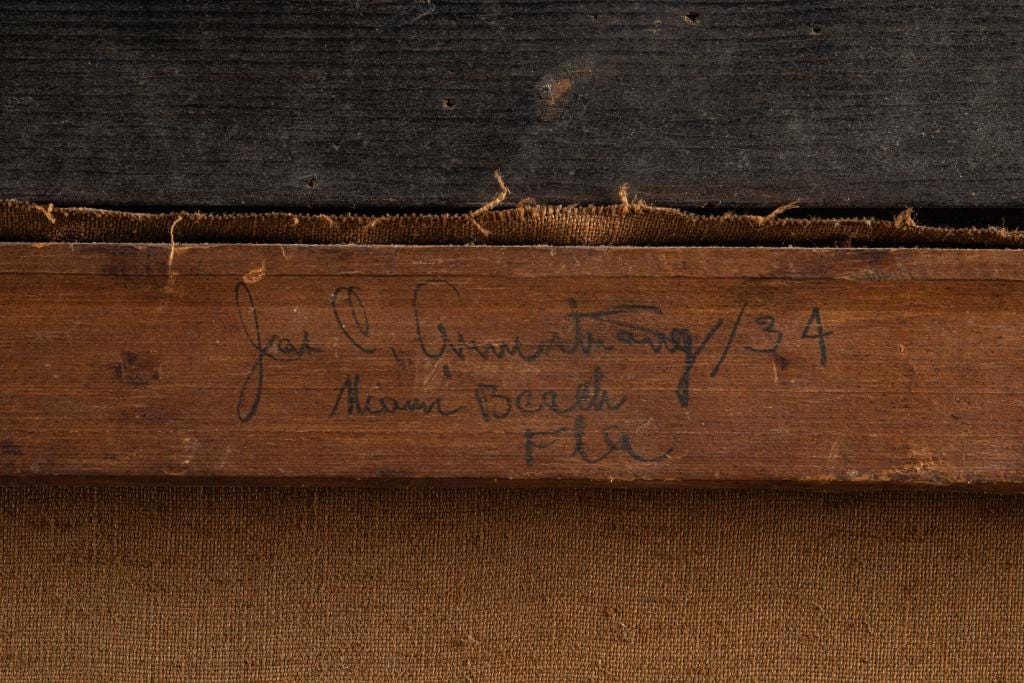 Jas C. Armstrong/34
Miami Beach
Fla